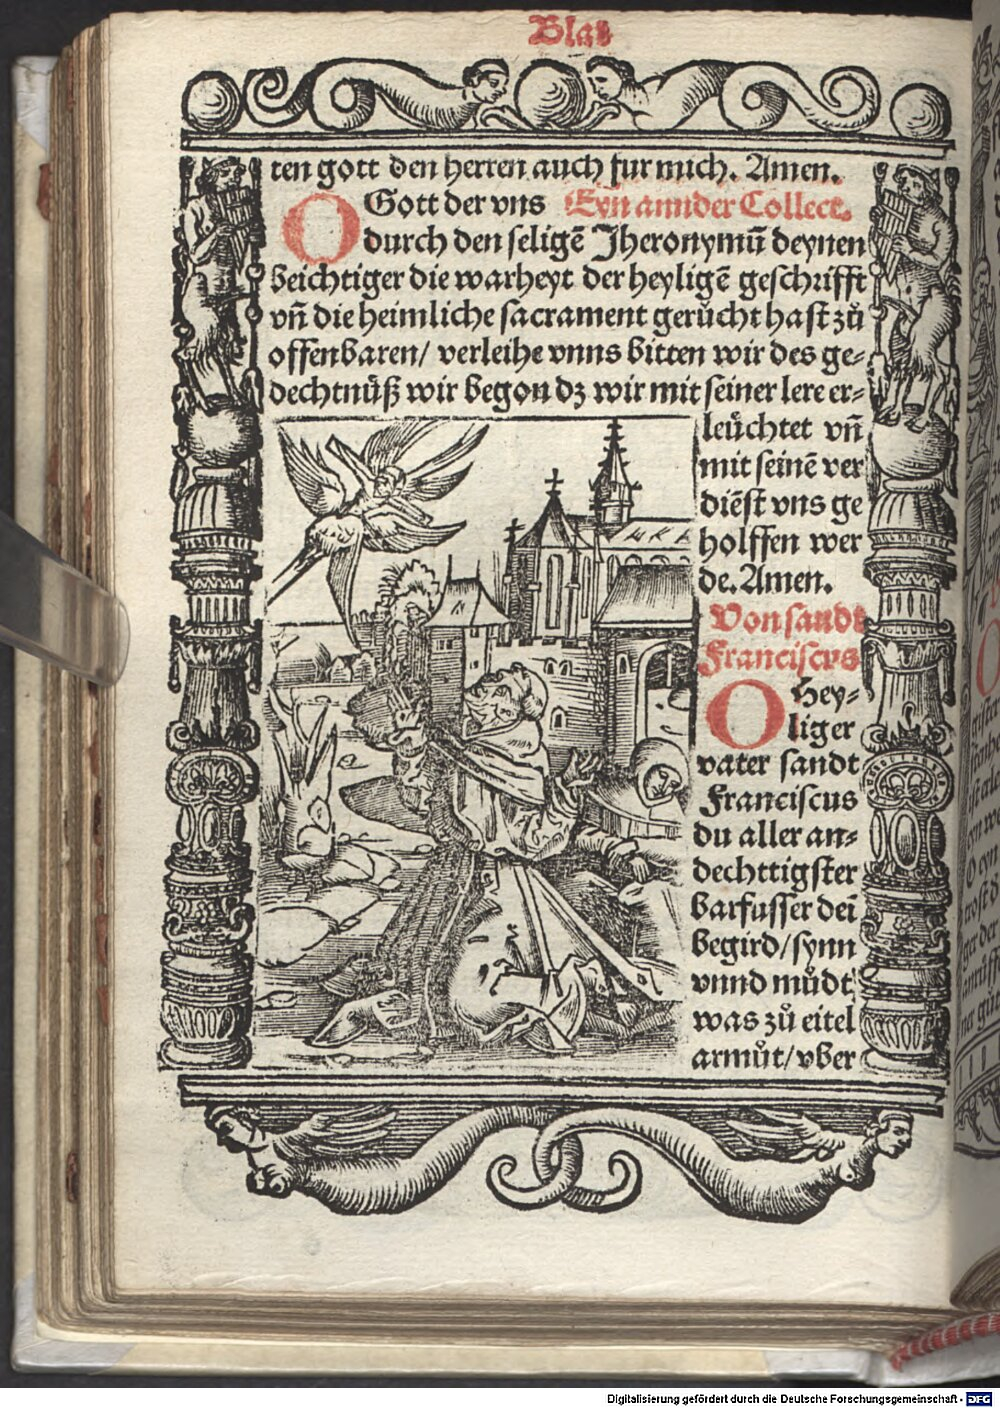 Blat
ten gott den herren auch fur mich. Amen.
O Gott der vns Eyn annder Collect.
durch den seligē Jheronymū deynen
beichtiger die warheyt der heyligē geschrifft
vñ die heimliche sacrament gerůcht hast zů
offenbaren/ verleihe vnns bitten wir des ge⸗
dechtnůß wir begon dz wir mit seiner lere er⸗
leůchtet vñ
mit seinē ver
diēst vns ge
holffen wer
de. Amen.
Von sandt
Franciscvs
O Hey⸗
liger
vater sandt
Franciscus
du aller an⸗
dechttigster
barfusser dei
begird/ synn
vnnd můdt
was zů eitel
armůt/ vber
Digitalisierung gefördert durch die Deutsche Forschungsgemeinschaft - DFG